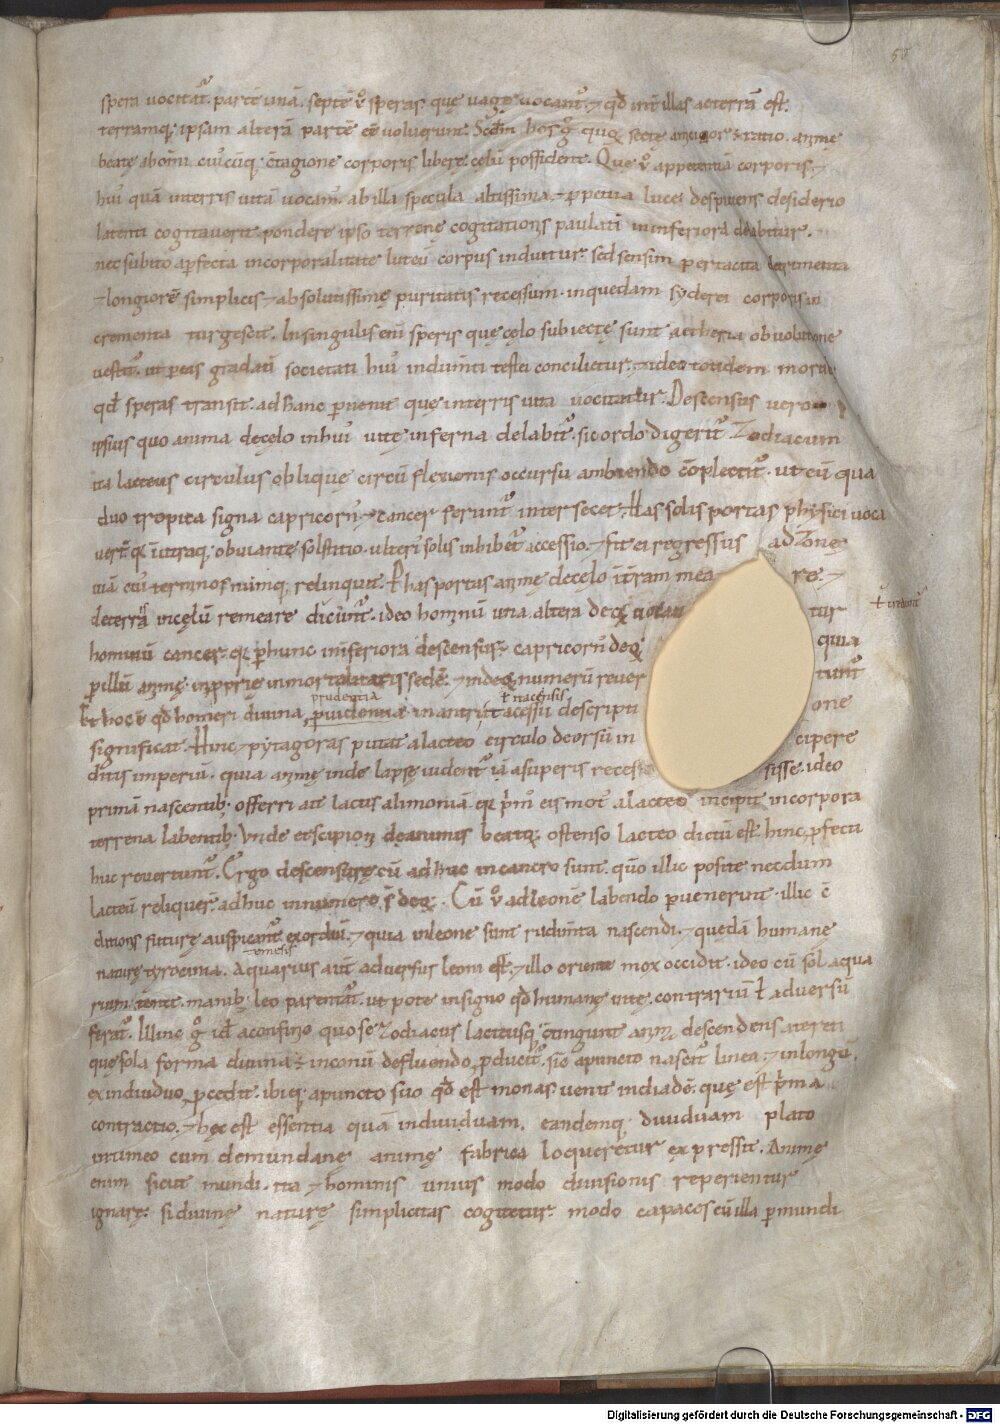 58
spera vocitat̄. partē unā. septē v̄ speras. quę vagę vocant̄. & qd̄ int̄ illas ac terrā est.
terramq; ipsam alterā partē eē voluerunt. Scd̄m hos g̊ quoꝝ sectę amicior ē ratio. animę
beatę ab om̄i cuiuscūq; c̄tagione corporis liberę cęlū possident. Quę v̄ appetentiā corporis. &
hui' quā in terris vitā vocam'. ab illa specula altissima. & perpetua luce despiciens desiderio
latenti cogitaverit pondere ipso terrenę cogitationis paulati in inferiora delabitur.
nec subito a perfecta incorporalitate luteū corpus induitur. sed sensim per tacita detrimenta
& longiorē simplicis & absolutissimę puritatis recessum. in quedam syderei corporis in
crementa turgescit. In singulis eni speris quę cęlo subiectę sunt aetheria obvolutione
vestit̄. ut p eas gradati societati hui' indumti testei concilietur. & ideo totidem mortib
qd̄ speras transit. ad hanc puenit quę in terris vita vocitatur. Descensus vero
ipsius quo anima de cęlo in hui' vitę inferna delabit̄. sic ordo digerit̄. Zodiacum
ita lacteus circulus obliquę circū flexionis occursu ambiendo cōplectit̄. ut eū qua
duo tropica signa capricorn' & cancer ferunt̄ intersecet. Has solis portas physici voca
vert̄. q; in utraq; obviante solstitio. ulteri' solis inhibet̄ accessio. & fit ei regressus ad zonę
viā cui' terminos nūmq; relinquit. P has portas animę de cęlo in terram mea re. &
de terra in cęlū remeare dicunt̄. ideo hominū una. altera deoꝝ vocatur ł creduntur
hominū cancer. q; p hunc in inferiora descensus ē. capricorn' deoꝝ quia
p illū animę in pprię inmortalitatis sedē. & in deoꝝ numerū rever tunt̄
Et hoc ē qd̄ homeri divina prudentia pvidentia in antri itacessii ł itacensis descripti one
significat. Hinc & pytagoras putat a lacteo circulo deorsū in cipere
ditis imperiū. quia animę inde lapsę vident̄ iā a superis reces sisse. ideo
primā nascentib; offerri ait lactis alimoniā. q; prim' eis mot' a lacteo incipit in corpora
terrena labentib;. Unde et scipioni de animis beatoꝝ ostenso lacteo dictū est. hinc pfecti
huc revertunt̄. Ergo descensurę cū adhuc in cancro sunt. quo illic positę necdum
lacteū reliquer̄. adhuc in numero s̄ deoꝝ. Cū v̄ ad leonē labendo puenerint. illic c̄
ditionis futurę auspicant̄ exordiū. & quia in leone sunt rudimta nascendi. & quedā humanę
naturę tyrocinia. Aquarius aut̄ adversus leoni est. & illo oriente mox occidit. ideo cū sol aqua
rium tenet. manib; leo parentat̄. utpote in signo qd̄ humanę vitę contrariū ł adversū
ferat̄. Illinc g̊ id' a confinio quo se zodiacus lacteusq; c̄tingunt anim descendens a tereti
quę sola forma divina ē in conū defluendo pducit̄. sic a puncto nascit̄ linea. & in longū
ex individuo pcedit. ibiq; a puncto suo qd̄ est monas venit in diadē. quę est prima
contractio. & hęc est essentia quā individuam. eandemq; dividuam plato
in timeo cum de mundanę animę fabrica loqueretur expressit. Animę
enim sicut mundi. ita & hominis unius modo divisionis reperientur
ignarę. si divinę naturę simplicitas cogitetur. modo capaces cū illa p mundi
Digitalisierung gefördert durch die Deutsche Forschungsgemeinschaft - DFG